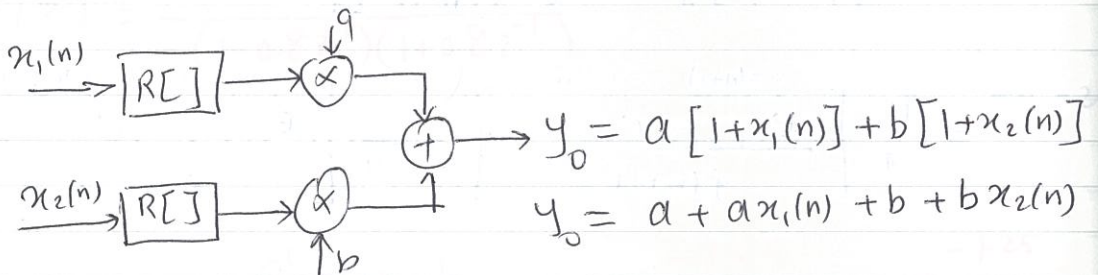 a
x₁(n)
R[ ]
×
+
y₀ = a [1+x₁(n)] + b [1+x₂(n)]
x₂(n)
R[ ]
×
y₀ = a + ax₁(n) + b + bx₂(n)
b